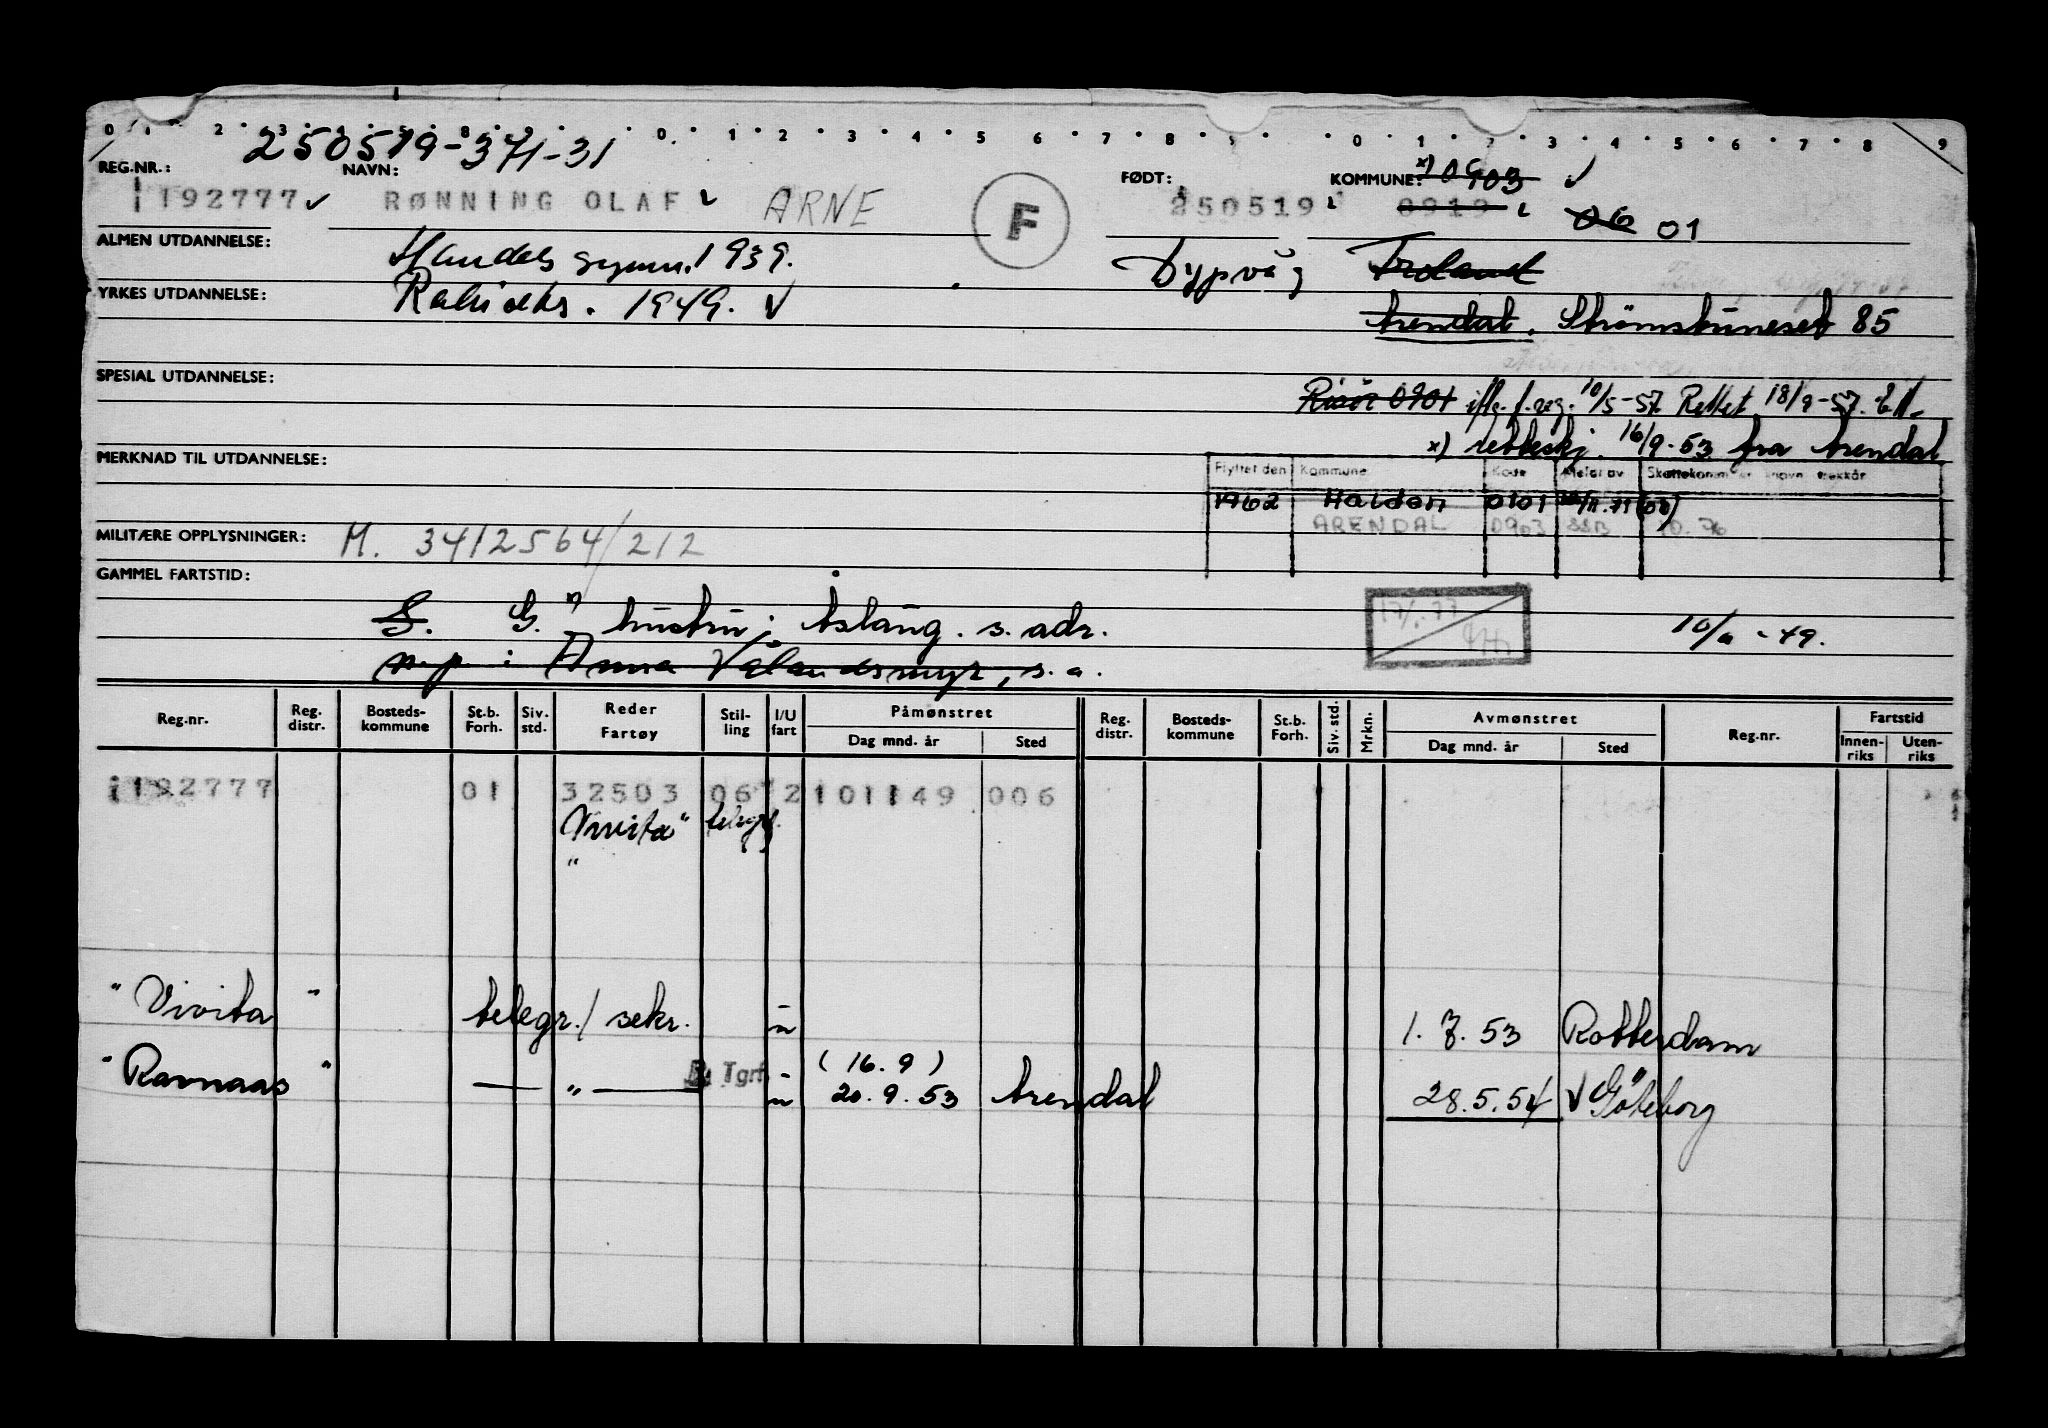 0 1 2 3 4 5 8 9 0 1 2 3 4 5 6 7 8 9 0 1 2 3 4 5 6 7 8 9
250519-371-31
REG.NR.: NAVN: FØDT: KOMMUNE: x) 0903 ✓
192777 ✓ RØNNING OLAF ARNE F 250519 0919
06 01
ALMEN UTDANNELSE: Handels gymn. 1939. Dypvåg Froland
YRKES UTDANNELSE: 1949. ✓
Arendal. Strømsbuneset 85
SPESIAL UTDANNELSE:
Risør 0901 iflg. f.reg. 10/5-57. Rettet 18/9-57.
x) retteskj. 16/9-53 fra Arendal
MERKNAD TIL UTDANNELSE:
Flyttet den Kommune Kode Meldt av
1962 Halden 0101
ARENDAL 0903 SSB 10.76
MILITÆRE OPPLYSNINGER: M. 3412564/212
GAMMEL FARTSTID:
S. G. hustru: Åslaug. s. adr.
10/11-49.
17/1-77
: Anna Vålandsmyr, s.a.
Reg.nr. Reg. distr. Bosteds-kommune St.b. Forh. Siv. std. Reder Fartøy Stil-ling I/U fart Påmønstret Dag mnd. år Sted Reg. distr. Bosteds-kommune St.b. Forh. Siv. std. Mrkn. Avmønstret Dag mnd. år Sted Reg.nr. Fartstid Innen-riks Uten-riks
192777 01 32503 06 2 101149 006
"Vivita" telegr.
"Vivita" telegr./sekr. u 1. 7. 53 Rotterdam
(16.9)
"Ravnaas" — " — Tgrf. u 20.9.53 Arendal 28.5.54 ✓ Göteborg